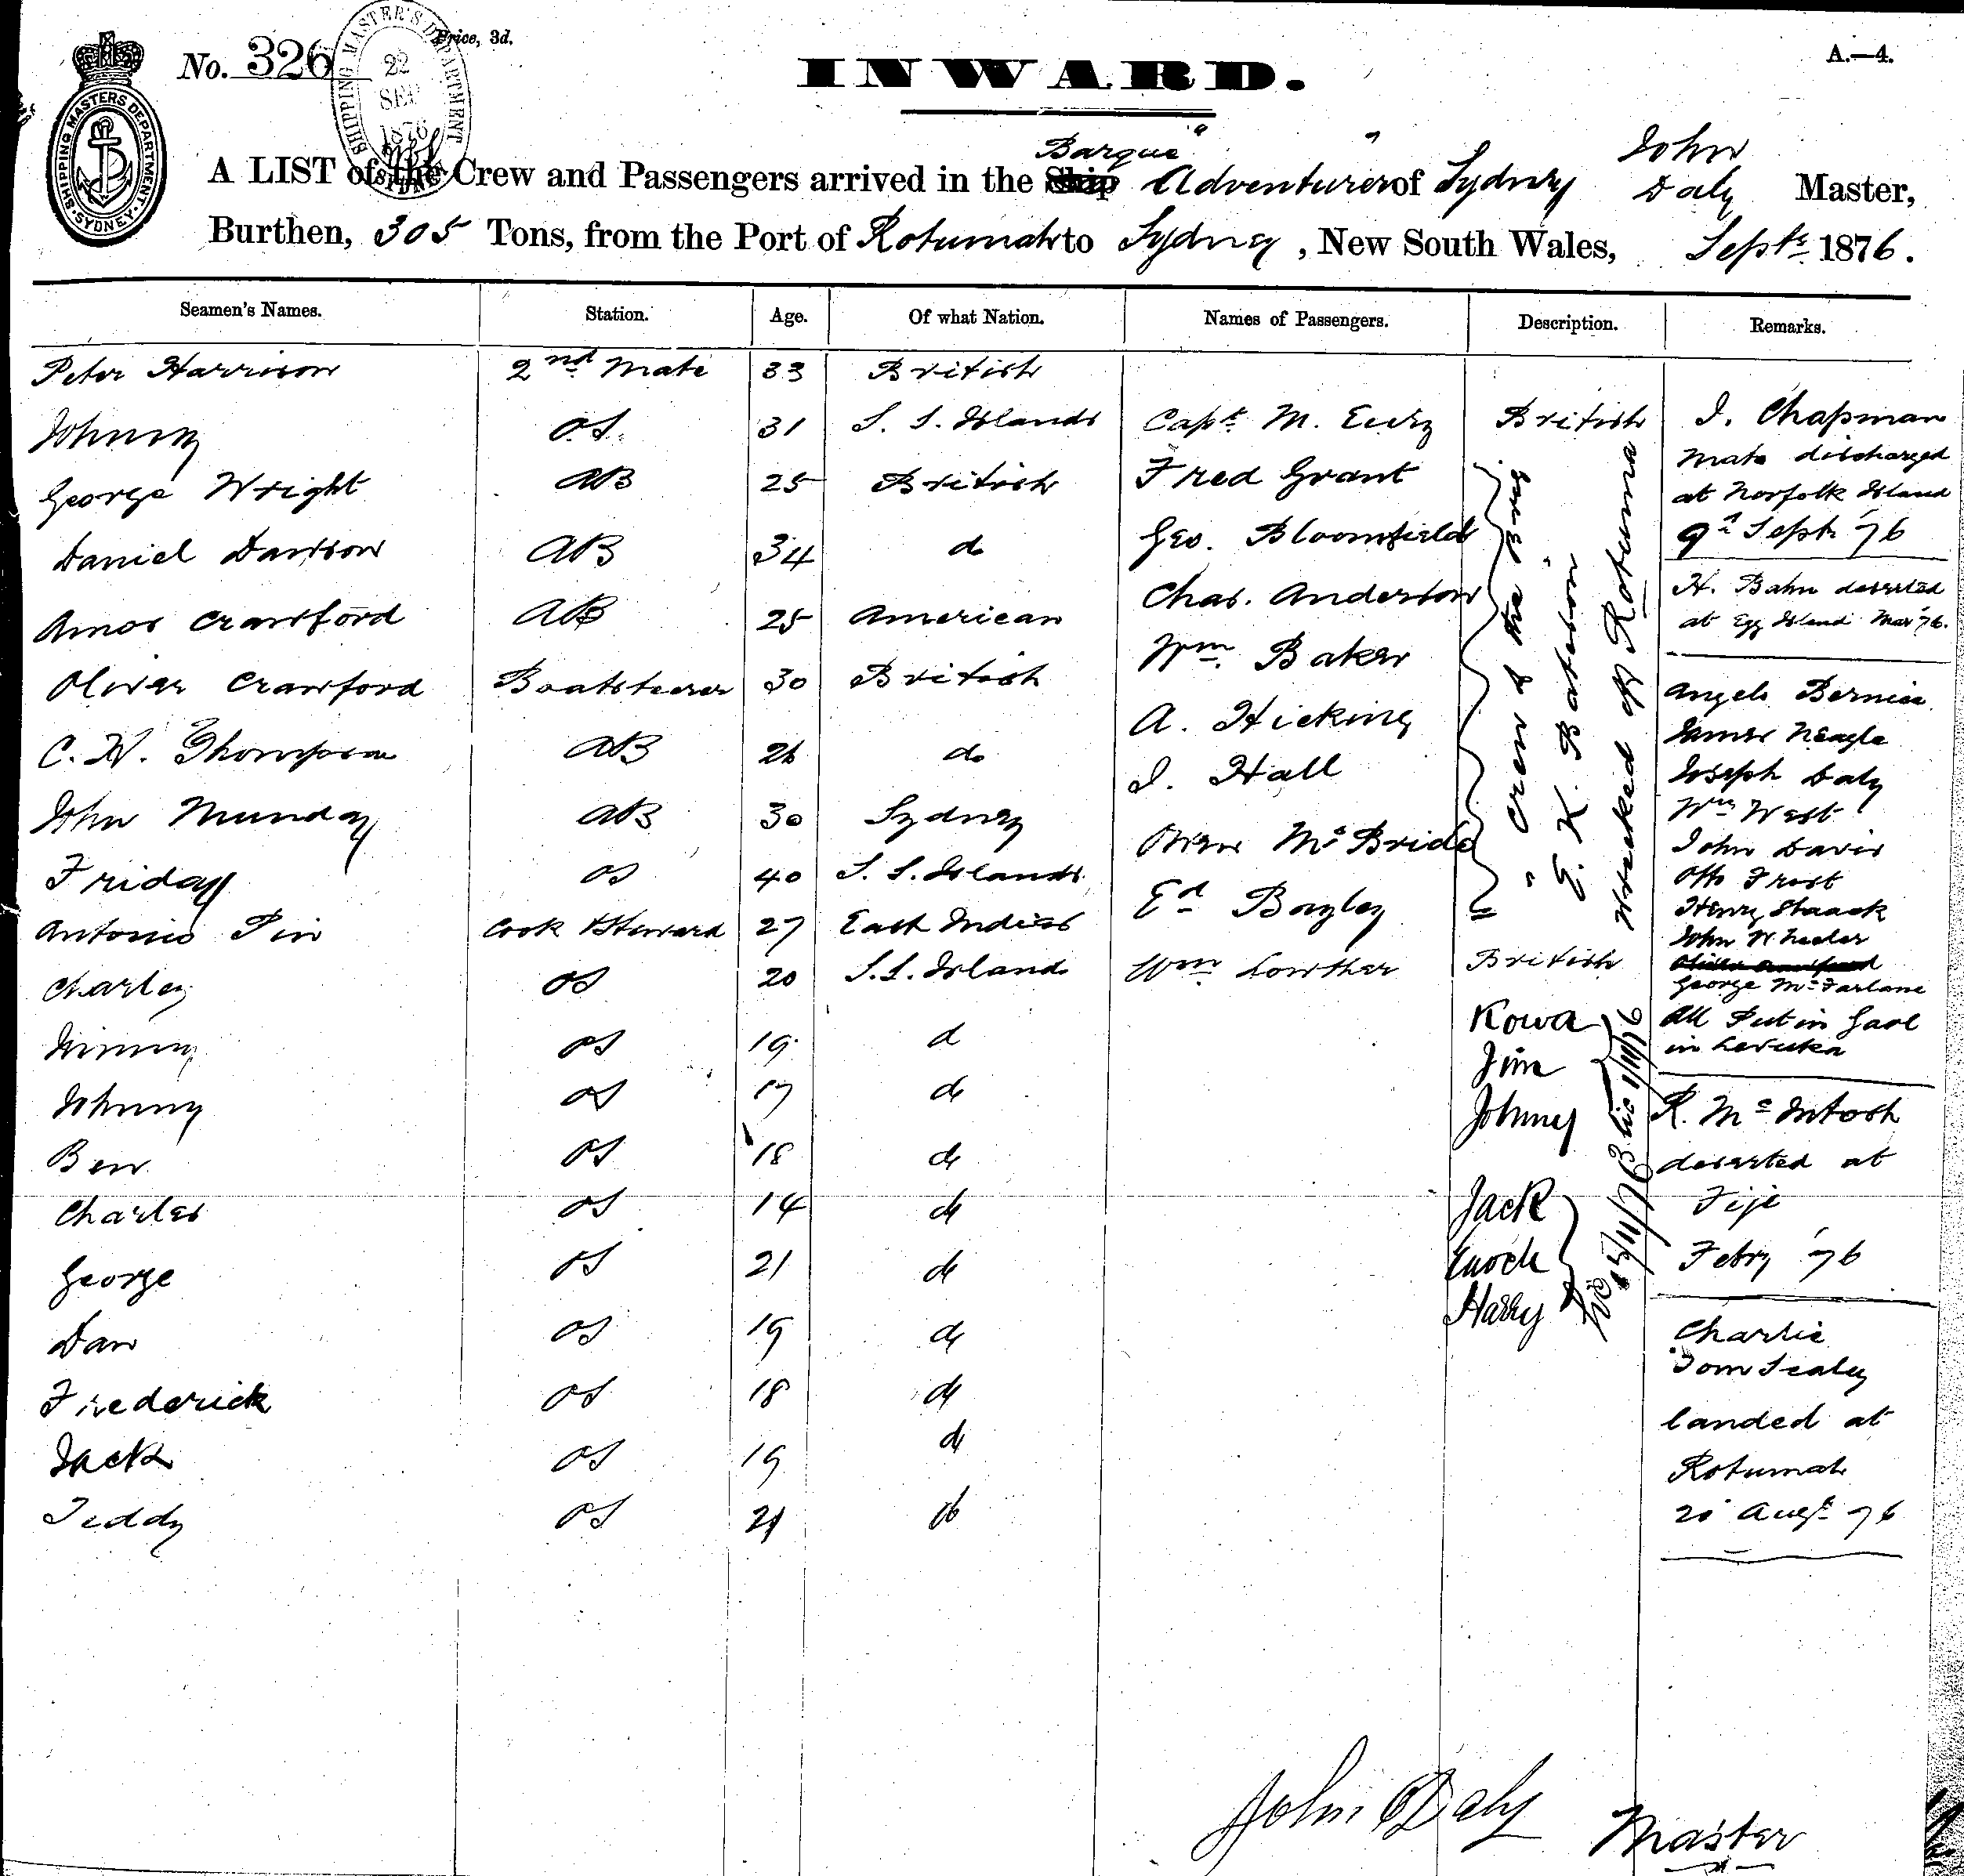 No. 326
Price, 3d.
A.—4.
SHIPPING MASTERS DEPARTMENT. SYDNEY
SHIPPING MASTER'S DEPARTMENT
22
SEP
1876
SYDNEY
INWARD.
A LIST of the Crew and Passengers arrived in the Ship Barque "Adventurer" of Sydney John Daly Master,
Burthen, 305 Tons, from the Port of Rotumah to Sydney, New South Wales, Septr. 1876.
Seamen's Names. Station. Age. Of what Nation. Names of Passengers. Description. Remarks.
Peter Harrison 2nd Mate 33 British
Johnny OS. 31 S. S. Islands
George Wright AB 25 British
Daniel Dawson AB 34 do
Amos Crawford AB 25 American
Oliver Crawford Boatsteerer 30 British
C. W. Thompson AB 26 do
John Munday AB 30 Sydney
Friday OS 40 S. S. Islands
Antonio Pin Cook & Steward 27 East Indies
Charley OS 20 S.S. Island
Jimmy OS 19 d
Johnny OS 17 do
Ben OS 18 do
Charles OS 14 do
George OS 21 do
Dan OS 19 do
Frederick OS 18 do
Jack OS 19 do
Teddy OS 21 do
Capt. M. Eury British
Fred Grant
Geo. Bloomfield
Chas. Anderson
Wm. Baker
A. Hicking
J. Hall
Owen McBride
Ed Bagley
Crew of the Brig
"E. K. Bateson"
Wrecked off Rotuma
Wm Lowther British
Kowa
Jim
Johney
Jack
Enoch
Harry
J. Chapman
Mate discharged
at Norfolk Island
9th Sept. 76
H. Bahn deserted
at Egg Island Mar 76.
Angelo Bernice
James Neagle
Joseph Daly
Wm West
John Davis
Otto Frost
Henry Staack
John Wheeler
Oliver Crawford
George McFarlane
All Put in Gaol
in Levuka
R. McIntosh
deserted at
Fiji
Feby '76
Charlie
Tom Sealey
landed at
Rotumah
20 Augt 76
John Daly
Master